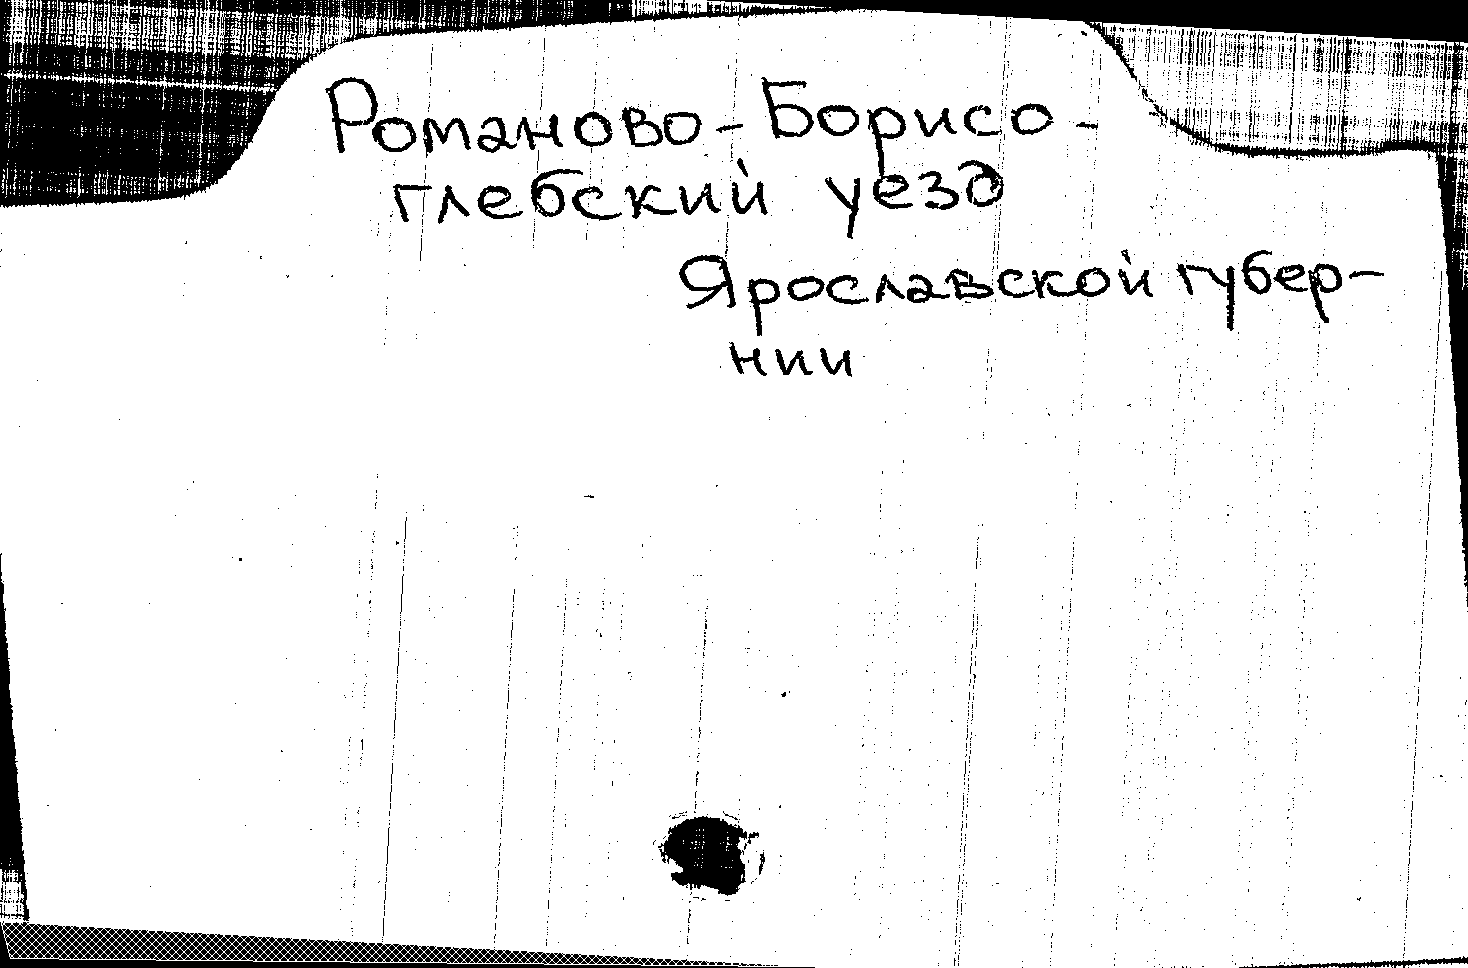 Романово-Борисо-
глебский уезд
Ярославской губер-
нии